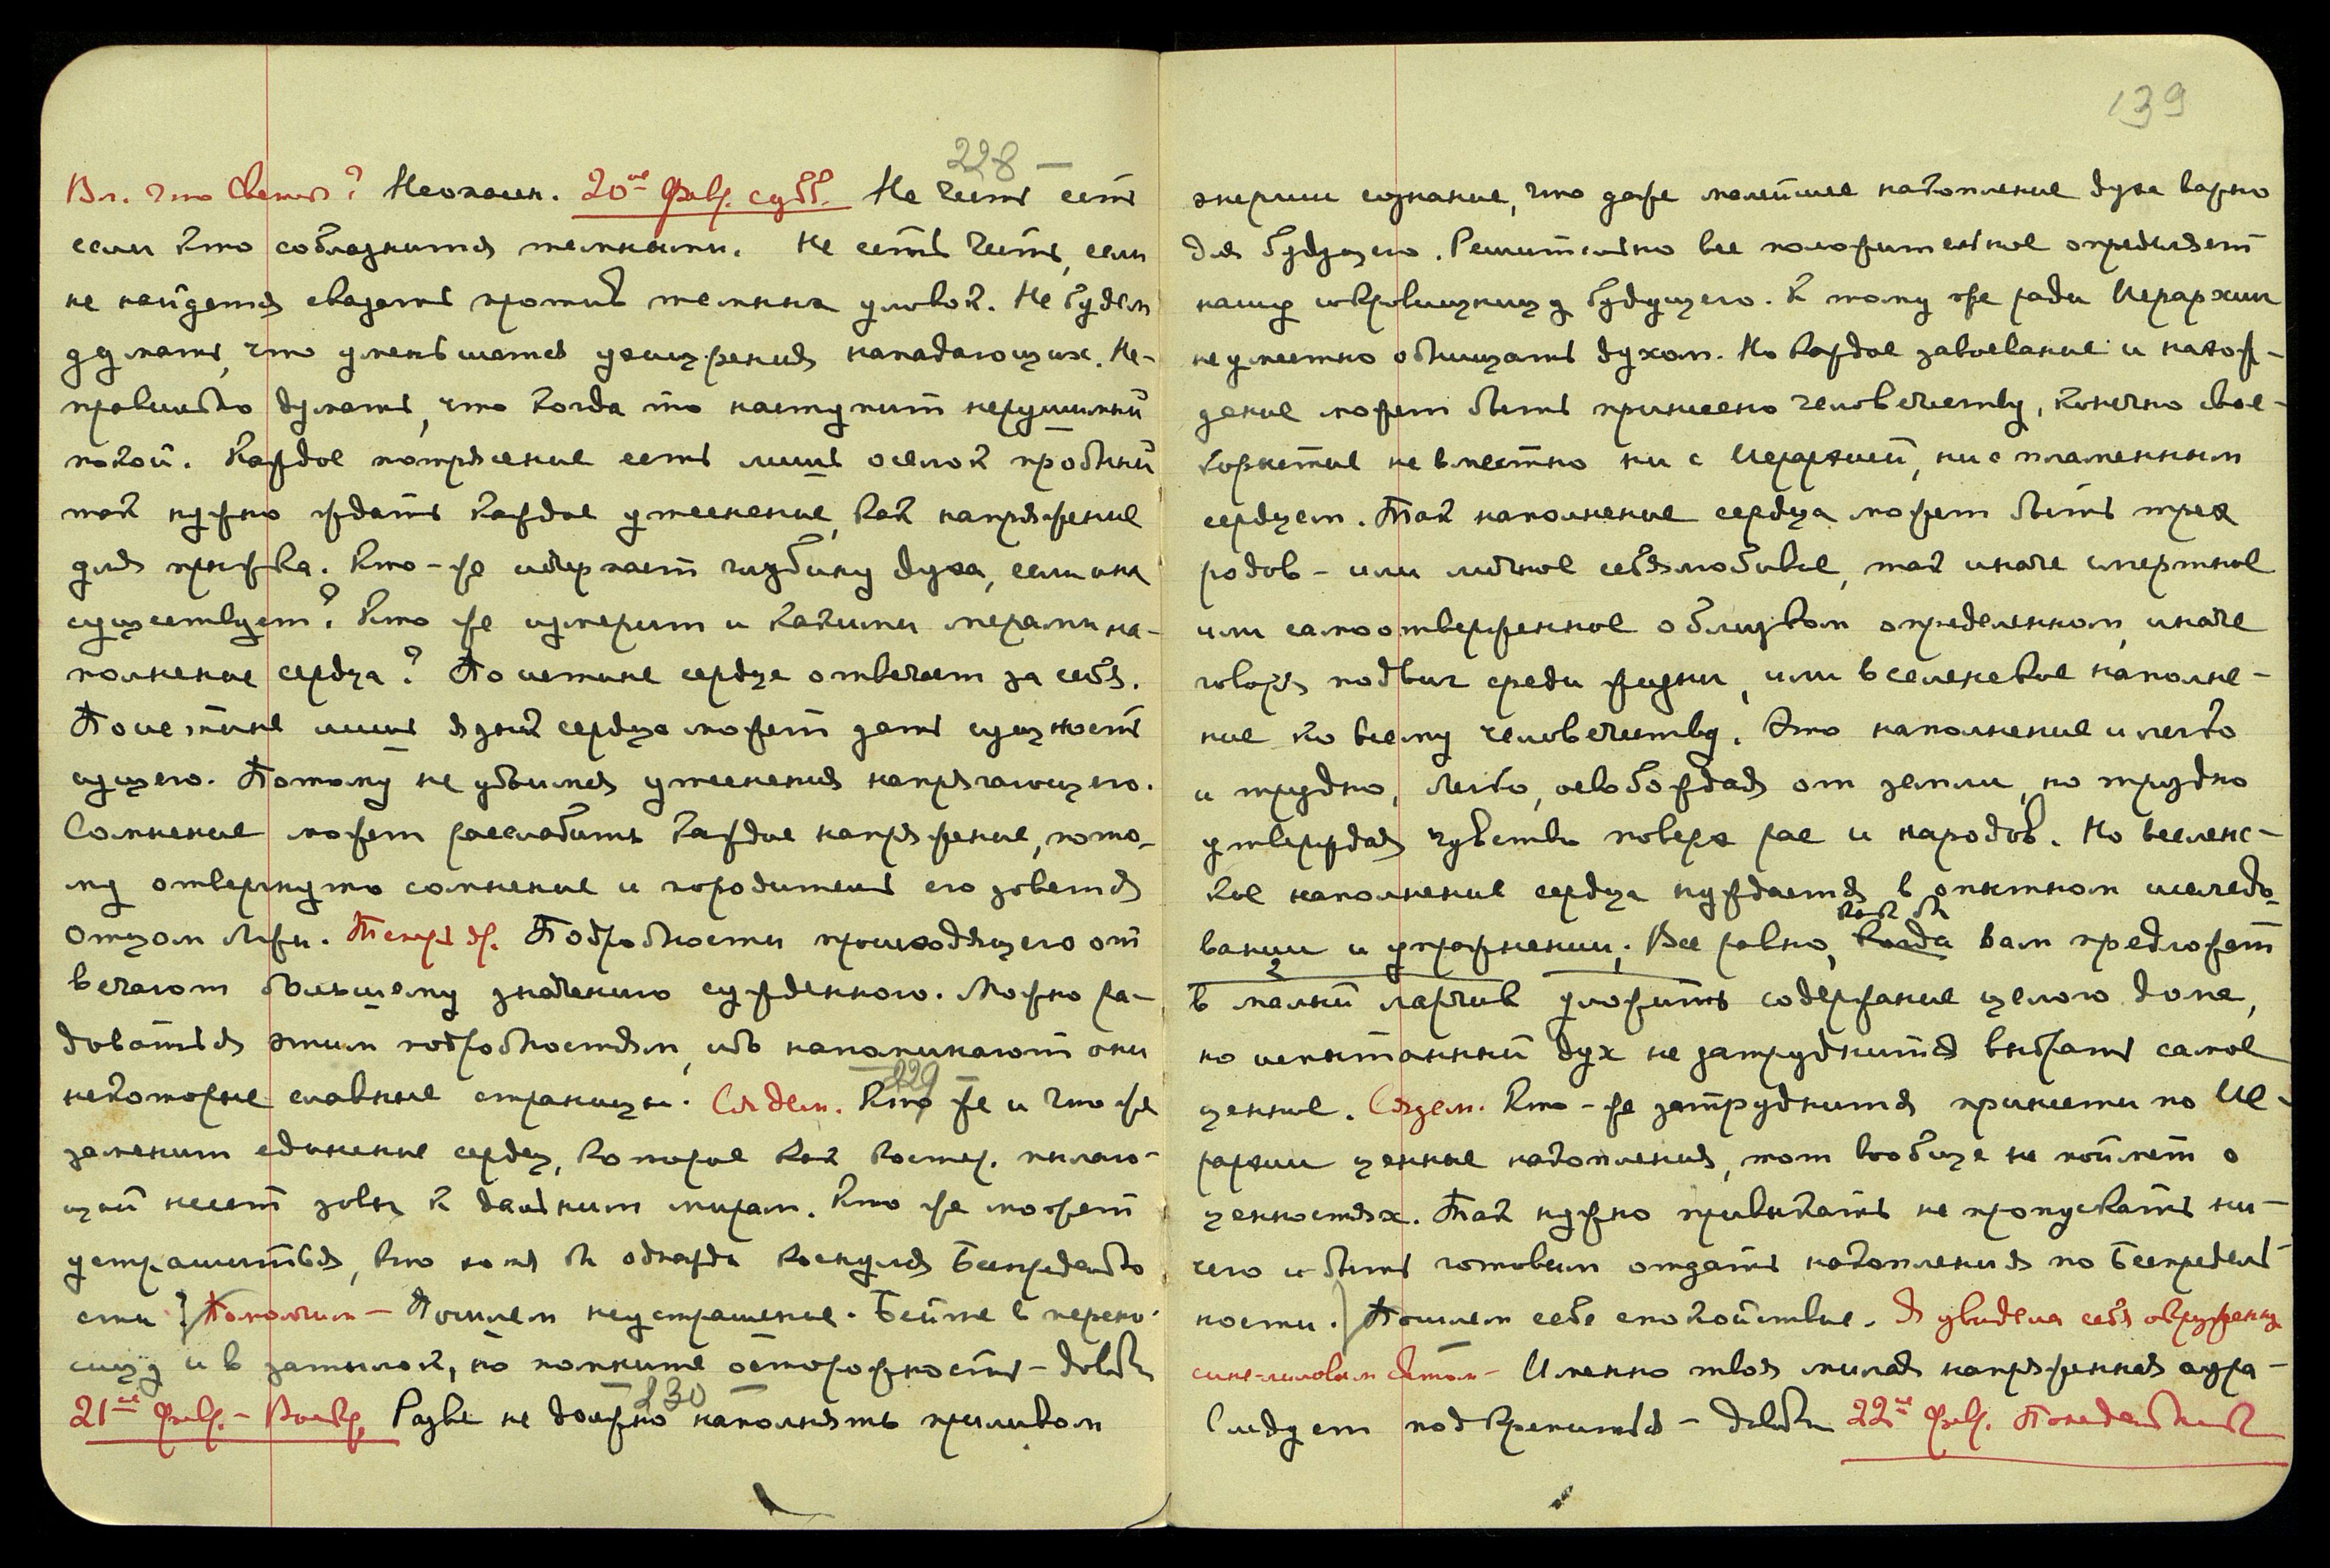 228 —
Вл. что Светит? Неопасен. 20ое Февр. субб. Не честь есть
если кто соблазнится темными. Не есть честь, если
не найдется сказать против темных уловок. Не будем
думать, что уменьшатся ухищрения нападающих. Не-
правильно думать, что когда то наступит нерушимый
покой. Каждое потрясение есть лишь оселок пробный
так нужно ждать каждое утеснение, как напряжение
для прыжка. Кто-же исчерпает глубину духа, если она
существует? Кто же измерит и какими мерами на-
полнение сердца? По истине сердце отвечает за себя.
Поистине лишь язык сердца может дать сущность
сущего. Потому не убоимся утеснения напрягающего.
Сомнение может расслабить каждое напряжение, пото-
му отвергнуто сомнение и породитель его зовется
отцом лжи. Теперь др. Подробности происходящего от
вечают большему значению сужденного. Можно ра-
доваться этим подробностям, ибо напоминают они
229
некоторые славные страницы. Сядем. Кто же и что же
заменит единение сердец, которое как костер. пылаю-
щий несет зовы к дальним мирам. Кто же может
устрашиться, кто хотя бы однажды коснулся Беспредельно
сти? Помолчим — Пошлем неустрашение. Бейте в перено-
сицу и в затылок, но помните осторожность — довольн
230
21ое Февр. — Воскр. Разве не должно наполнять приливом
139
энергии сознание, что даже малейшее накопление духа важно
для будущего. Решительно все положительное определяет
нашу сокровищницу будущего. К тому же ради Иерархии
неуместно обнищать духом. Но каждое завоевание и нахож-
дение может быть принесено человечеству, конечно свое-
корыстие невместно ни с Иерархией, ни с пламенным
сердцем. Так наполнение сердца может быть трех
родов — или личное себялюбивое, так иначе смертное
или самоотверженное о близком определенном, иначе
говоря подвиг среди жизни, или вселенское наполне-
ние ко всему человечеству. Это наполнение и легко
и трудно, легко, освобождая от земли, но трудно
утверждая чувство поверх рас и народов. Но вселенс-
кое наполнение сердца нуждается в опытном исследо-
как бы
вании и упражнении. Все равно, когда вам предложат
в малый ларчик уложить содержание целого дома,
но испытанный дух не затруднится выбрать самое
ценное. Сядем. Кто-же затруднится принести по Ие-
рархии ценные накопления, тот вообще не поймет о
ценностях. Так нужно привыкать не пропускать ни-
чего и быть готовым отдать накопления по Беспредель-
ности.) Пошлем себе спокойствие. Я увидела себя окруженну
сине-лиловым светом — Именно твоя милая напряженная аура —
Следует подкрепиться — довольн 22ое Февр. Понедельник